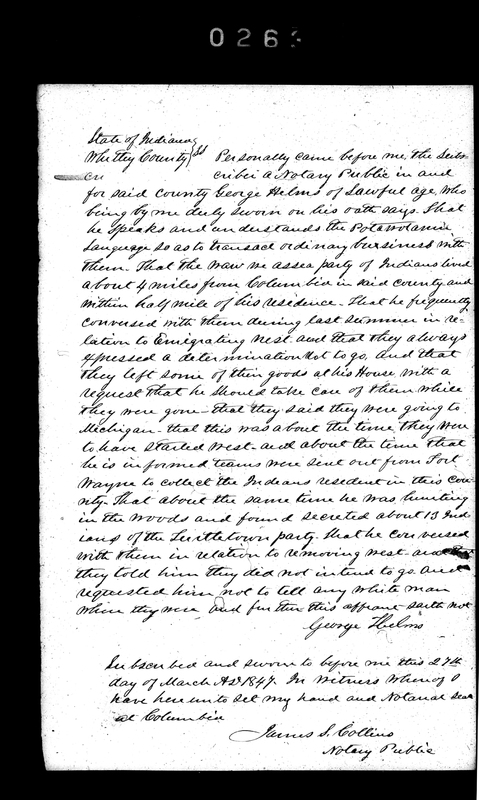 0263
State of Indiana
Whitley County } SS Personally came before me, the Subs
cri cribei a Notary Public in and
for said County George Helms of Lawful age, who
being by me duly sworn on his oath says. That
he speaks and understands the Potawotamie
Language so as to transact ordinary bursiness with
them. That the party of Indians lived
about 4 miles from Columbia in said county and
within half mile of his residence. That he frequently
conversed with them during last summer in re-
lation to Emigrating West. and that they always
expressed a determination not to go, and that
they left some of their goods at his House, with a
request that he should take care of them while
they were gone - that they said they were going to
Michigan - that this was about the time they were
to have started west - and about the time that
he is informed teams were sent out from Fort
Wayne to collect the Indians resedent in this cou
nty. That about the same time he was hunting
in the woods and found secreted about 13 Ind
ians of the party. that he conversed
with them in relation to removing west. and that
they told him they did not intend to go. And
requested him not to tell any white man
where they were and further this affiant saith not
George Helms
Subscribed and sworn to before me this 27th
day of March AD 1847. In Witness whereof I
have here unto set my hand and Notarial Seal
at Columbia
James S. Collins
Notary Public